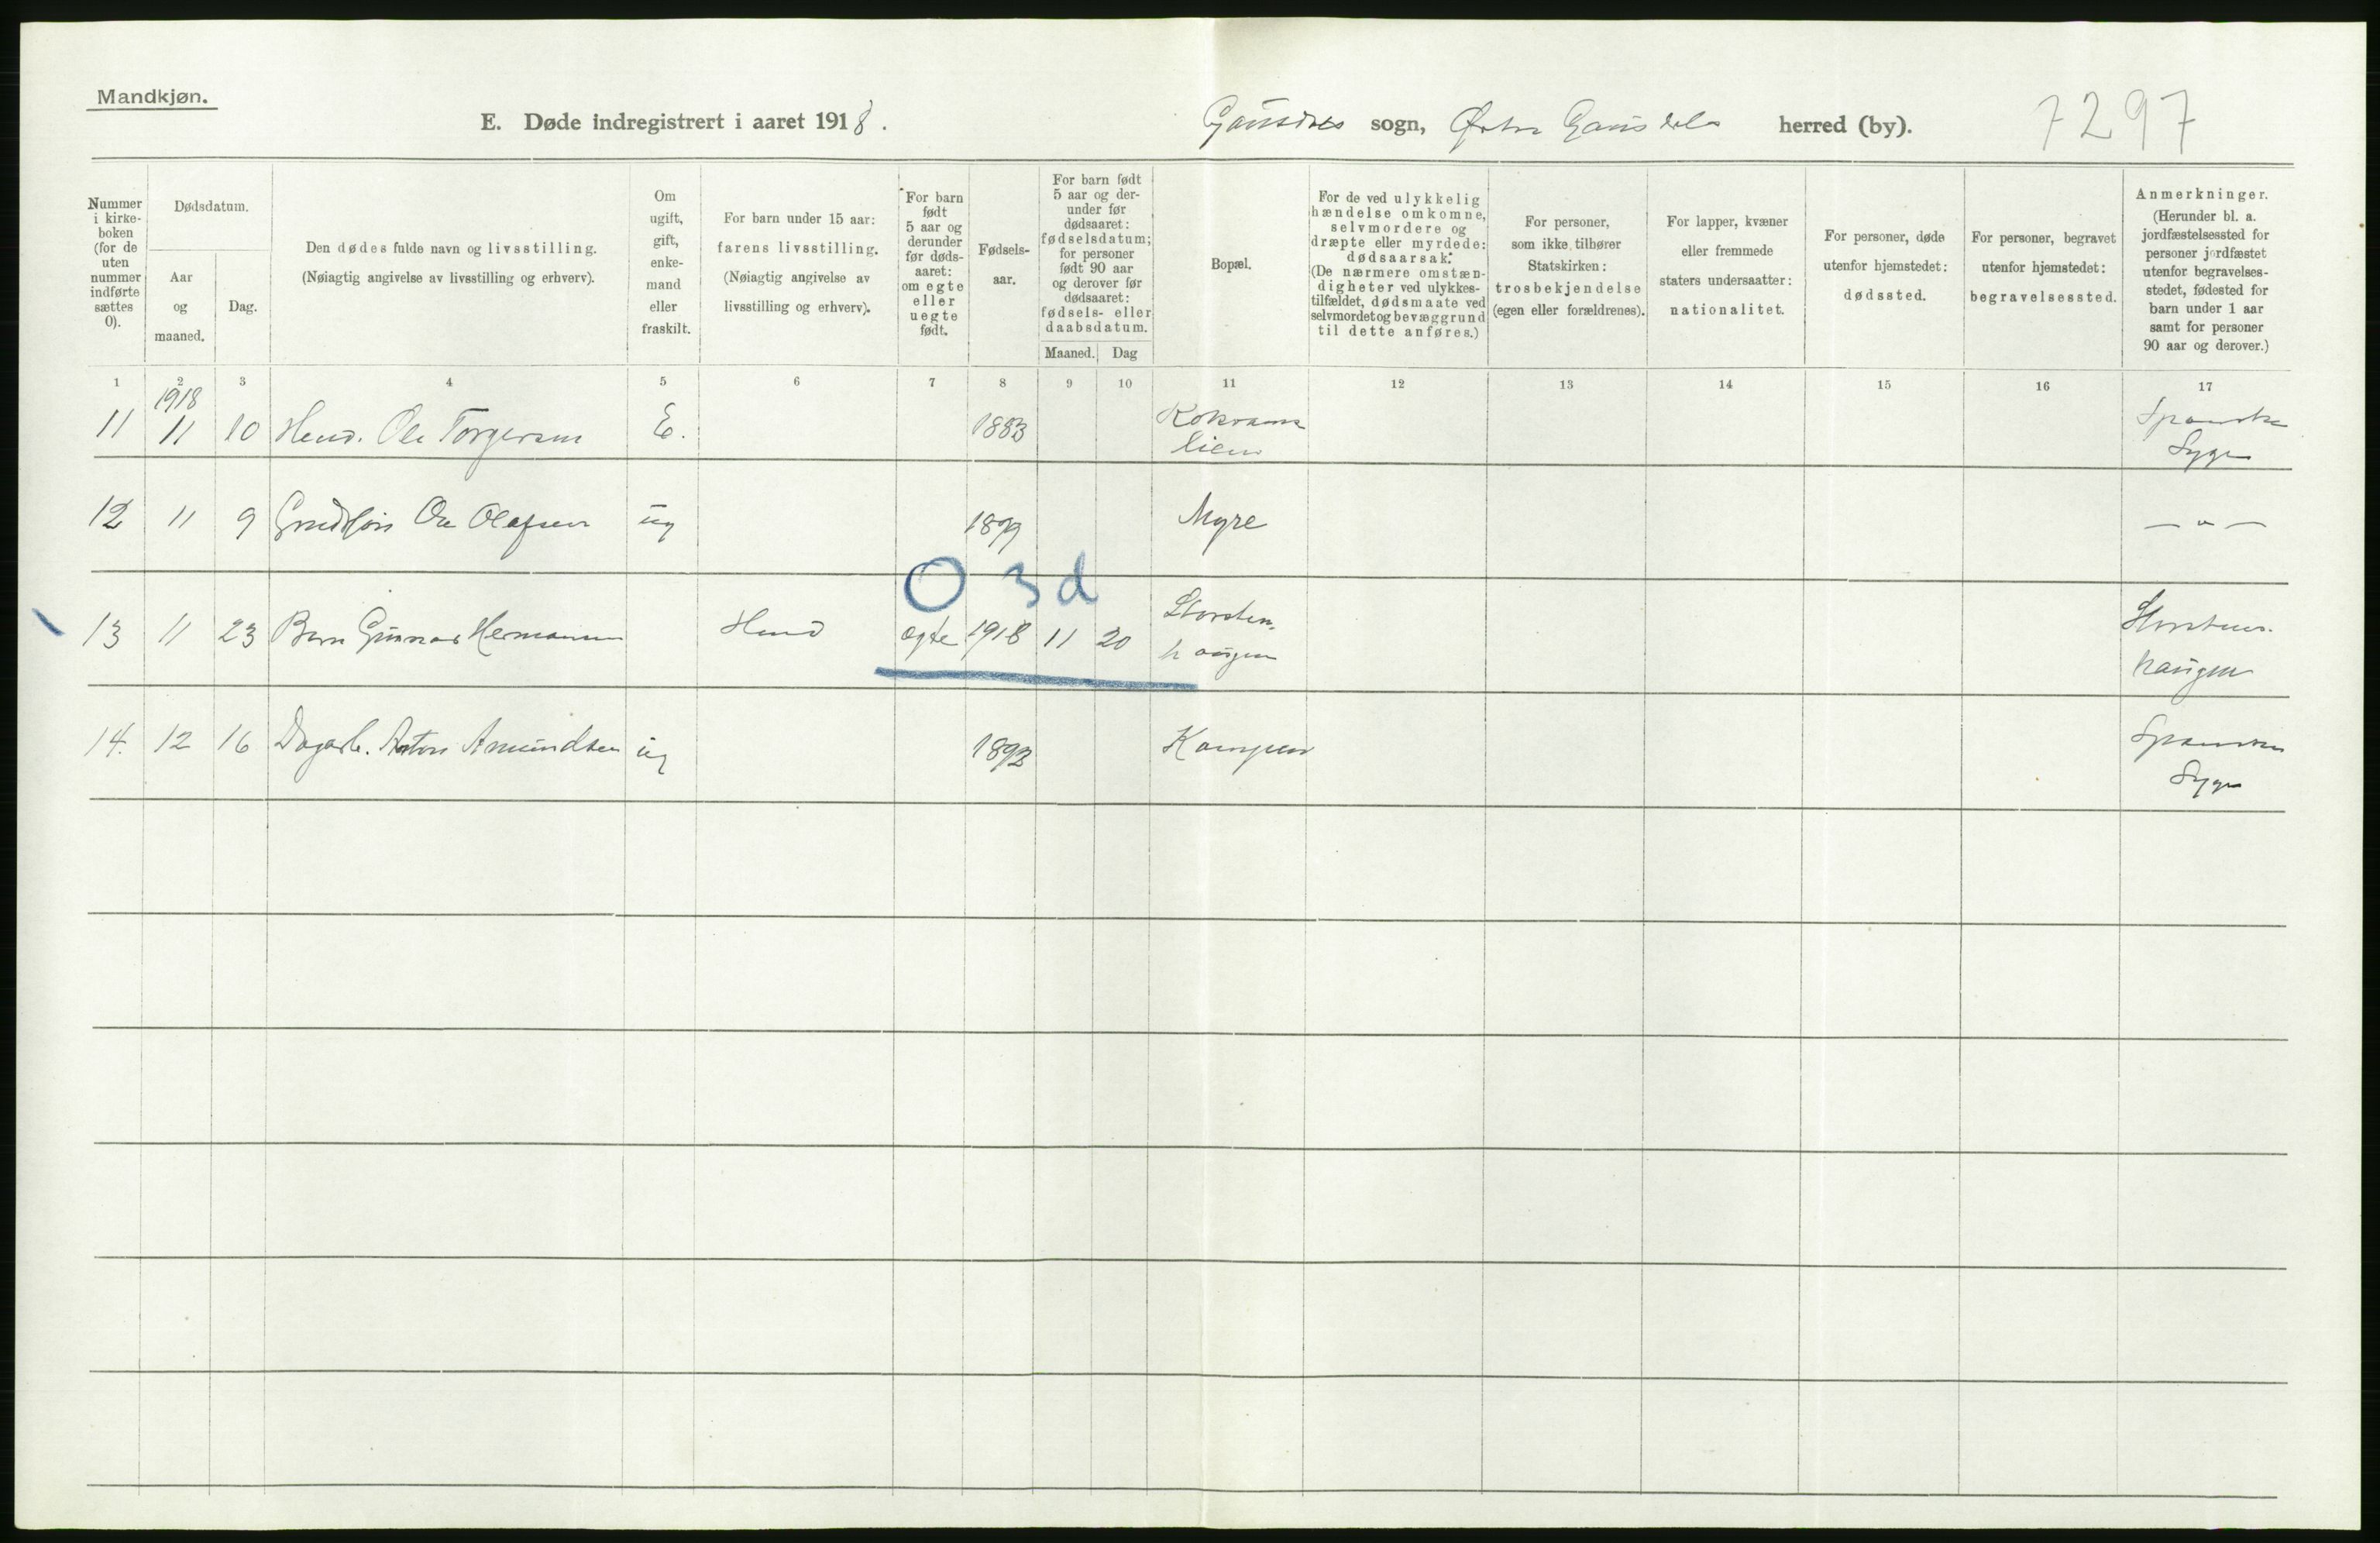 Mandkjøn.
E. Døde indregistrert i aaret 1918.
Gausdals sogn, Østre Gausdals herred (by).
7297
Nummer i kirke- boken (for de uten nummer indførte sættes 0).
Dødsdatum.
Aar og maaned.
Dag.
Den dødes fulde navn og livsstilling.
(Nøiagtig angivelse av livsstilling og erhverv).
Om ugift, gift, enke- mand eller fraskilt.
For barn under 15 aar:
farens livsstilling.
(Nøiagtig angivelse av
livsstilling og erhverv).
For barn født 5 aar og derunder før døds- aaret: om egte eller uegte født.
Fødsels- aar.
For barn født 5 aar og der- under før dødsaaret: fødselsdatum; for personer født 90 aar og derover før dødsaaret: fødsels- eller daabsdatum.
Maaned. Dag
Bopæl.
For de ved ulykkelig hændelse omkomne, selvmordere og dræpte eller myrdede: dødsaarsak.
(De nærmere omstæn- digheter ved ulykkes- tilfældet, dødsmaate ved selvmordet og bevæggrund til dette anføres.)
For personer, som ikke tilhører Statskirken: trosbekjendelse (egen eller forældrenes).
For lapper, kvæner eller fremmede staters undersaatter: nationalitet.
For personer, døde utenfor hjemstedet: dødssted.
For personer, begravet utenfor hjemstedet: begravelsessted.
Anmerkninger.
(Herunder bl. a. jordfæstelsessted for personer jordfæstet utenfor begravelses- stedet, fødested for barn under 1 aar samt for personer 90 aar og derover.)
1 2 3 4 5 6 7 8 9 10 11 12 13 14 15 16 17
1918
11 11 10 Ole Torgersen E. 1883 Spanske
lien Syge
12 11 9 Olafsen ug 1899 Myre — " —
O 3 d
13 11 23 Barn Gunnar Hermansen egte 1918 11 20 Storsten- Storsten-
haugen haugen
14. 12 16 Dagarb. Anton Amundsen ug 1892 Kampen Spanske
Syge